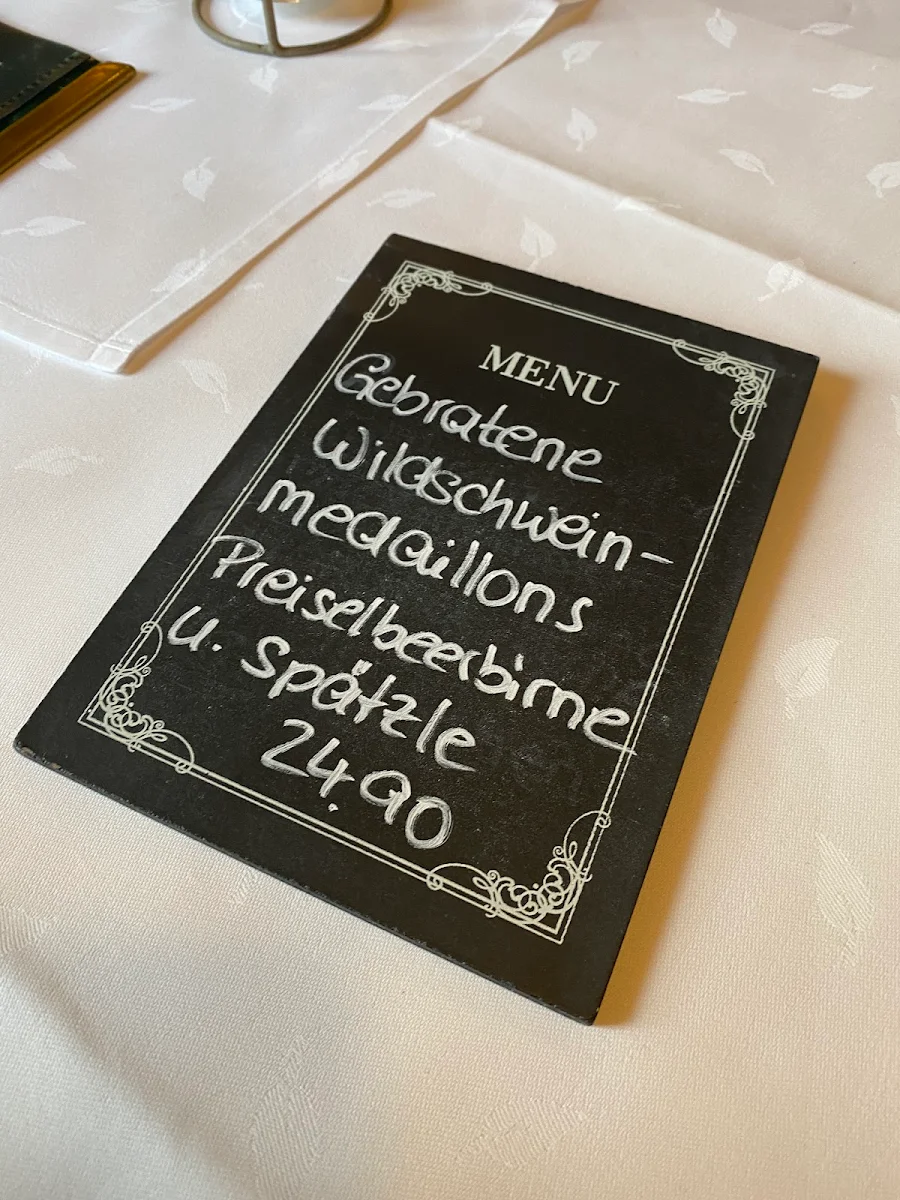 MENU
Gebratene
Wildschwein-
medaillons
Preiselbeerbirne
u. Spätzle
24.90